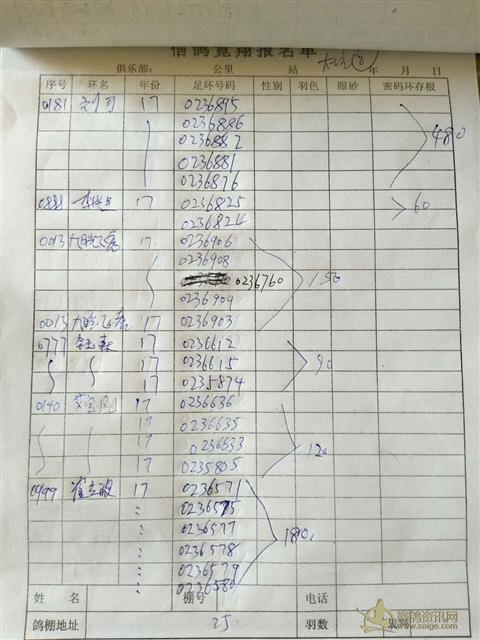 信鸽竞翔报名单
俱乐部： 公里 站 年 月 日
序号 环名 年份 足环号码 性别 羽色 眼砂 密码环存根
0181 17 0236895
0236886
0236882
0236881
0236876 480
0888 17 0236825
0236824 60
0013 17 0236906
0236908
0236760 150
0236909
0013 17 0236903
0777 17 0236612
17 0236615 90
17 0235874
0140 17 0236636
17 0236635
17 0236633 120
17 0235805
0999 17 0236571
0236575
0236577 180
0236578
0236579
0236580
姓名 棚号 电话
鸽棚地址 25 羽数
赛鸽资讯网
www.saige.com